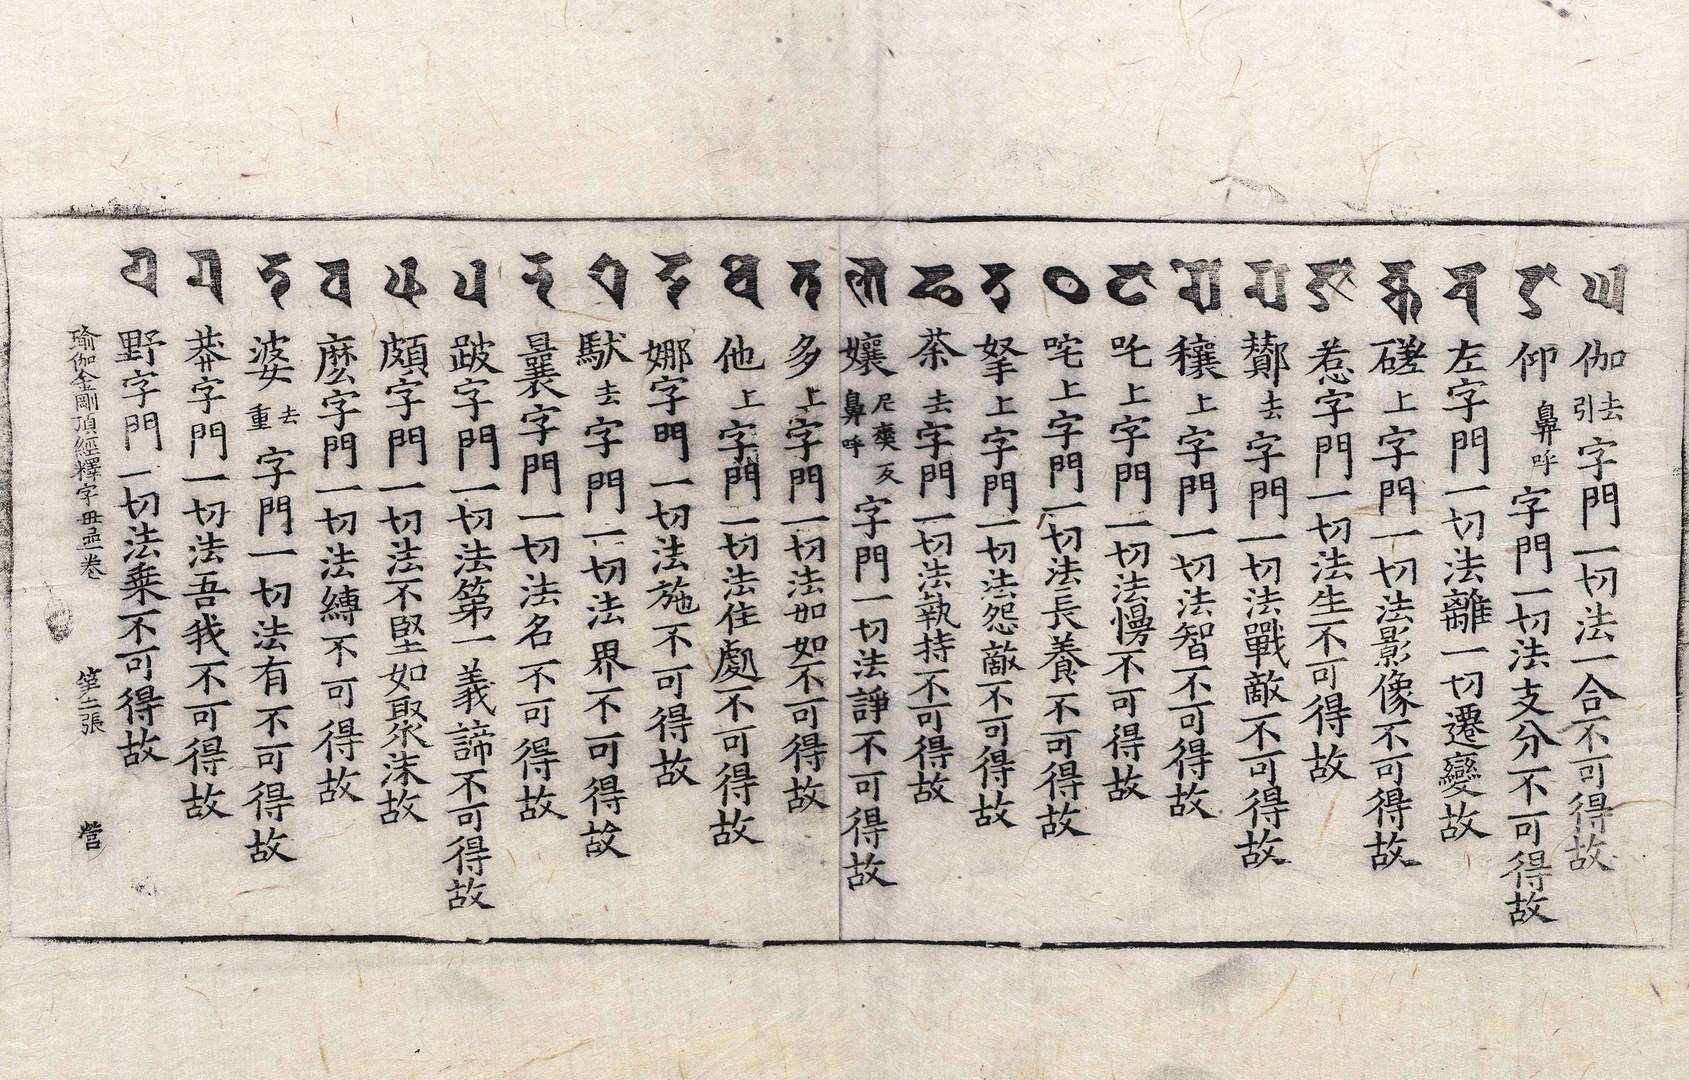 𑖑 伽去引字門一切法一合不可得故
𑖒 仰鼻呼字門一切法支分不可得故
𑖓 左字門一切法離一切遷變故
𑖔 磋上字門一切法影像不可得故
𑖕 惹字門一切法生不可得故
𑖖 酇去字門一切法戰敵不可得故
𑖗 穰上字門一切法智不可得故
𑖘 吒上字門一切法慢不可得故
𑖙 咤上字門一切法長養不可得故
𑖚 拏上字門一切法怨敵不可得故
𑖛 荼去字門一切法執持不可得故
𑖜 孃尼爽反鼻呼字門一切法諍不可得故
𑖝 多上字門一切法如如不可得故
𑖞 他上字門一切法住處不可得故
𑖟 娜字門一切法施不可得故
𑖠 馱去字門一切法界不可得故
𑖡 曩字門一切法名不可得故
𑖢 跛字門一切法第一義諦不可得故
𑖣 頗字門一切法不堅如聚沫故
𑖤 麼字門一切法縛不可得故
𑖥 婆去重字門一切法有不可得故
𑖦 莽字門一切法吾我不可得故
𑖧 野字門一切法乘不可得故
瑜伽金剛頂經釋字母品一卷 第二張 營